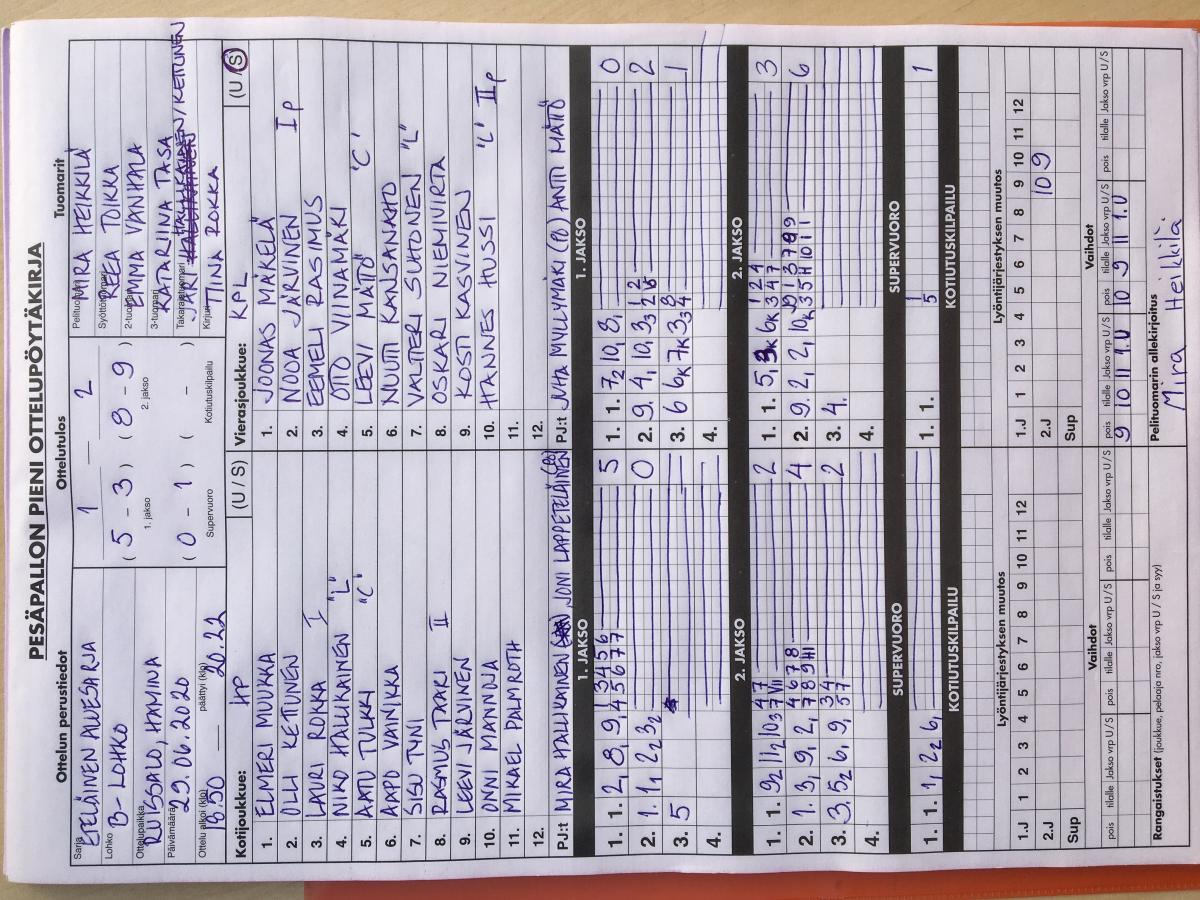 PESÄPALLON PIENI OTTELUPÖYTÄKIRJA
Ottelun perustiedot
Sarja
ETELÄINEN ALUESARJA
Lohko
B-LOHKO
Ottelupaikka
RUISSALO, HAMINA
Päivämäärä
29.06.2020
Ottelu alkoi (klo) päättyi (klo)
18.50 — 20.22
Ottelutulos
1 — 2
(5 - 3) (8 - 9)
1. jakso 2. jakso
(0 - 1) ( - )
Supervuoro Kotiutuskilpailu
Tuomarit
Pelituomari
MIRA HEIKKILÄ
Syöttötuomari
REEA TOIKKA
2-tuomari
EMMA VANHALA
3-tuomari
KATARIINA TASA
Takarajatuomari
JARI /KETTUNEN
Kirjuri
TIINA ROKKA
Kotijoukkue: HP (U / S)
1. ELMERI MUUKKA
2. OLLI KETTUNEN
3. LAURI ROKKA I
4. NIKO HALLIKAINEN "L"
5. AATU TULKKI "C"
6. AAPO VAINIKKA
7. SISU TYNI
8. RASMUS TASKI II
9. LEEVI JÄRVINEN
10. ONNI MANNOLA
11. MIKAEL PALMROTH
12.
PJ:t MIRA HALLIKAINEN JONI LAPPETELÄINEN (PJ)
Vierasjoukkue: KPL (U / S)
1. JOONAS MÄKELÄ
2. NOOA JÄRVINEN I P
3. EEMELI RASIMUS
4. OTTO VIINAMÄKI
5. LEEVI MÄTTÖ "C"
6. NUUTTI KANSANAHO
7. VALTTERI SUHTONEN "L"
8. OSKARI NIEMIVIRTA
9. KOSTI KASVINEN
10. HANNES HUSSI "L" II P
11.
12.
PJ:t JUHA MYLLYMÄKI (PJ) ANTTI MÄTTÖ
1. JAKSO
1. 1. 2, 8, 9, 5
2. 1. 1, 2 3 0
3. 5
4.
1. JAKSO
1. 1. 7 10, 8, 0
2. 9. 4, 10, 3 2
3. 6 6K 7K 3 1
4.
2. JAKSO
1. 1. 9 11 10 2
2. 1. 3, 9, 2, 4
3. 3, 5 6, 9, 2
4.
2. JAKSO
1. 1. 5, 3K 6K 3
2. 9. 2, 2, 10K 6
3. 4.
4.
SUPERVUORO
1. 1. 1, 2 6,
SUPERVUORO
1. 1. 1 5 1
KOTIUTUSKILPAILU
KOTIUTUSKILPAILU
Lyöntijärjestyksen muutos
1.J 1 2 3 4 5 6 7 8 9 10 11 12
2.J
Sup
Lyöntijärjestyksen muutos
1.J 1 2 3 4 5 6 7 8 9 10 11 12
2.J 10 9
Sup
Vaihdot
pois tilalle Jakso vrp U / S pois tilalle Jakso vrp U / S pois tilalle Jakso vrp U / S
Vaihdot
pois tilalle Jakso vrp U / S pois tilalle Jakso vrp U / S pois tilalle Jakso vrp U / S
9 10 II 1.U 10 9 II 1.U
Rangaistukset (joukkue, pelaaja nro, jakso vrp U / S ja syy)
Pelituomarin allekirjoitus
Mira Heikkilä